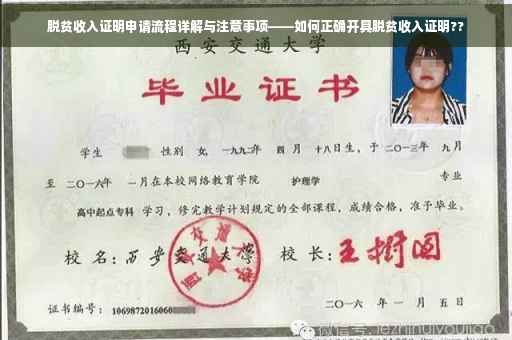 脱贫收入证明申请流程详解与注意事项——如何正确开具脱贫收入证明??
西安交通大学
毕业证书
学生 性别 女, 一九九二年 四月 十八日生, 于二〇一三年 九月
至 二〇一六年 一月在本校网络教育学院 护理学 专业
高中起点专科 学习, 修完教学计划规定的全部课程, 成绩合格, 准予毕业。
校名: 西安交通大学 校长: 王树国
西安交通大学
证书编号: 1069872016060
二〇一六年一月五日
微信号: jiezhihuiyoujiao